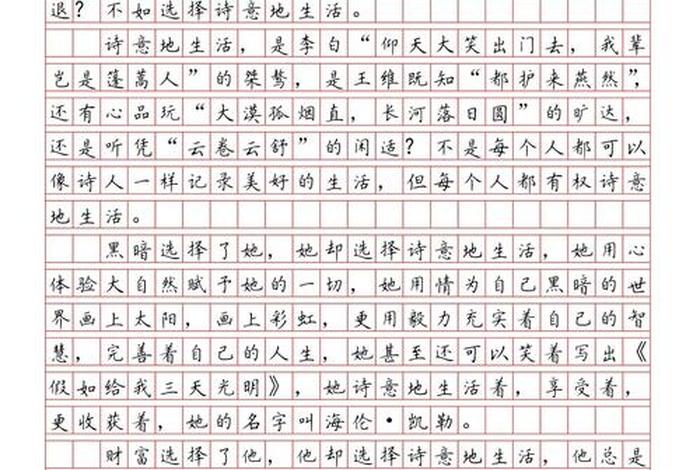 退？不如选择诗意地生活。
诗意地生活，是李白“仰天大笑出门去，我辈
岂是篷蒿人”的桀骜，是王维既知“都护来燕然”，
还有心品玩“大漠孤烟直，长河落日圆”的旷达，
还是听凭“云卷云舒”的闲适？不是每个人都可以
像诗人一样记录美好的生活，但每个人都有权诗意
地生活。
黑暗选择了她，她却选择诗意地生活，她用心
体验大自然赋予她的一切，她用情为自己黑暗的世
界画上太阳，画上彩虹，更用毅力充实着自己的智
慧，完善着自己的人生，她甚至还可以笑着写出《
假如给我三天光明》，她诗意地生活着，享受着，
更收获着，她的名字叫海伦·凯勒。
财富选择了他，他却选择诗意地生活，他总是